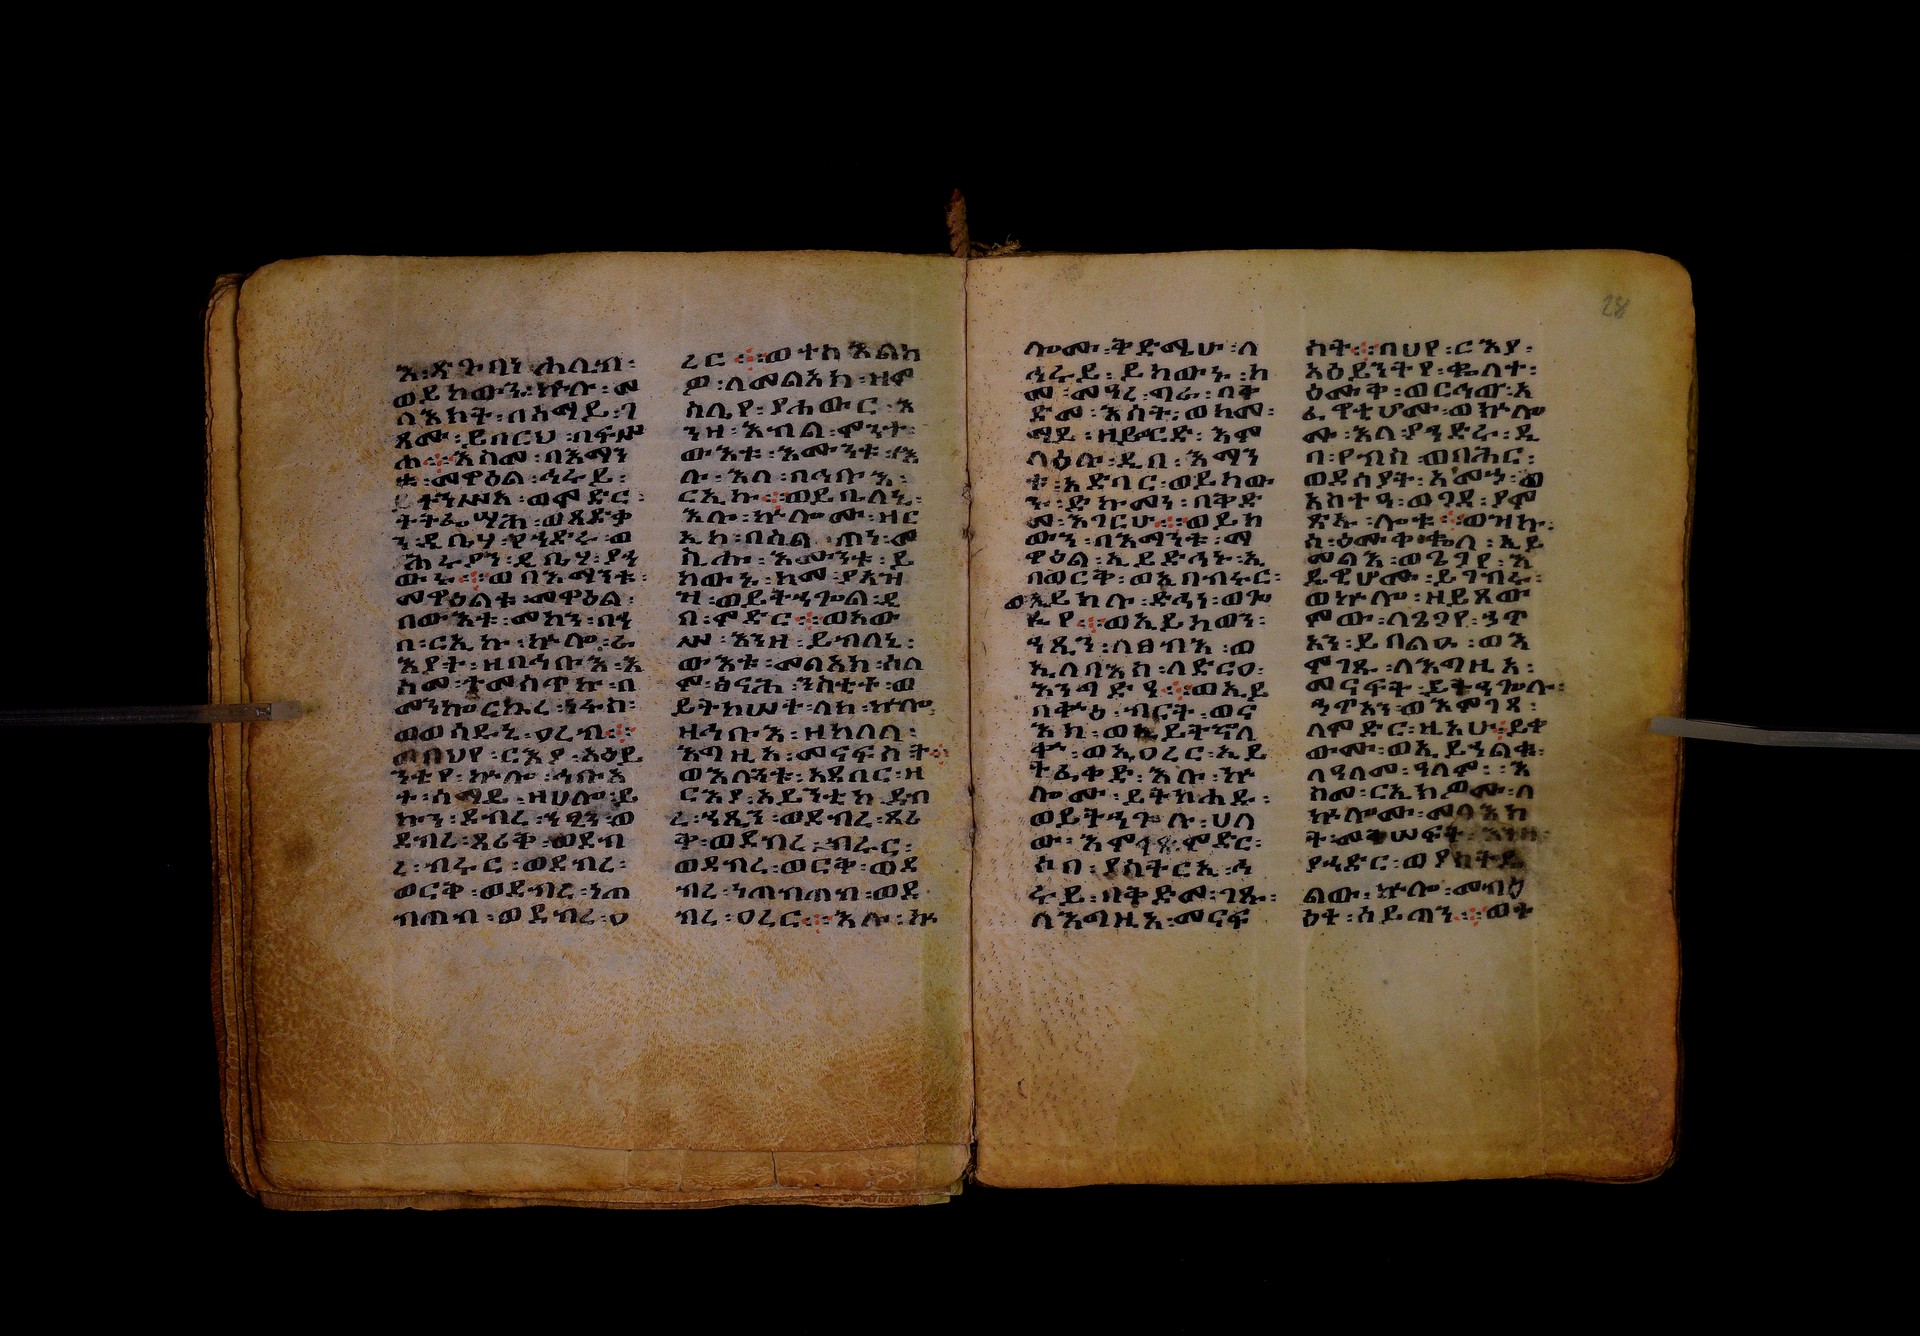 እ፡ጽጉባነ፡ሐሊብ፡
ወይከውኑ፡ኵሉ፡መ
ላእክት፡በሰማይ፡ገ
ጾሙ፡ይበርህ፡በፍሥ
ሐ፨እስመ፡በእማን
ቱ፡መዋዕል፡ኅሩይ፡
ተንሥአ፡ወምድር፡
ትትፌሣሕ፡ወጻድቃ
ን፡ዲቤሃ፡የኀድሩ፡ወ
ኅሩያን፡ዲቤሃ፡
፨ወበእማንቱ፡
መዋዕልቱ፡መዋዕል፡
በውእቱ፡መካን፡በኀ
በ፡ርኢኩ፡ኵሎ፡ራ
እያት፡ዘበኅቡእ፡እ
ስመ፡ተመሰጥኩ፡በ
መንኰርኲረ፡ነፋስ፡
ወወሰዱኒ፡ዐረብ፨
ወበህየ፡ርእያ፡አዕይ
ንትየ፡ኵሎ፡ኅቡአ
ት፡ሰማይ፡ዘሀሎ፡ይ
ኩን፡ደብረ፡ኀፂን፡ወ
ደብረ፡ጸሪቅ፡ወደብ
ረ፡ብሩር፡ወደብረ፡
ወርቅ፡ወደብረ፡ነጠ
ብጣብ፡ወደብረ፡ዐ
ረር፨ወተስእልክ
ዎ፡ለመልአክ፡ዘም
ስሌየ፡የሐውር፡እ
ንዘ፡እብል፡ምንት፡
ውእቱ፡እሙንቱ፡እ
ሉ፡እለ፡በኅቡእ፡
ርኢኩ፨ወይቤለኒ፡
እሉ፡ኵሎሙ፡ዘር
ኢከ፡በስል፡ጣነ፡መ
ሲሑ፡እሙንቱ፡ይ
ከውኑ፡ከመ፡የአዝ
ዝ፡ወይትኀየል፡ዲ
በ፡ምድር፨ወአው
ሥአ፡እንዘ፡ይብለኒ፡
ውእቱ፡መልአክ፡ሰላ
ም፡ፅናሕ፡ንስቲተ፡ወ
ይትከሠት፡ለከ፡ኵሎ፡
ዘኅቡእ፡ዘከለለ፡
እግዚአ፡መናፍስት፨
ወእሉንቱ፡አድባር፡ዘ
ርእያ፡አይንቲከ፡ደብ
ረ፡ኀጺን፡ወደብረ፡ጸሪ
ቅ፡ወደብረ፡ብሩር፡
ወደብረ፡ወርቅ፡ወደ
ብረ፡ነጠብጣብ፡ወደ
ብረ፡ዐረር፨እሉ፡ኵ
ሎሙ፡ቅድሜሁ፡ለ
ኅሩይ፡ይከውኑ፡ከ
መ፡መዓረ፡ግራ፡በቅ
ድመ፡እሳት፡ወከመ፡
ማይ፡ዘይወርድ፡እም
ላዕሉ፡ዲበ፡እማን
ቱ፡አድባር፡ወይከው
ኑ፡ድኩመነ፡በቅድ
መ፡እገርሁ፨ወይከ
ውን፡በእማንቱ፡መ
ዋዕል፡ኢይድኅኑ፡ኢ
በወርቅ፡ወኢበብሩር፡
ወኢይክሉ፡ድኂነ፡ወጐ
ይየ፨ወኢይከውን፡
ኀጺን፡ለፀብእ፡ወ
ኢለበአከ፡ለድርዐ፡
እንግድዓ፨ወኢይ
በቍዕ፡ብርት፡ወና
እክ፡ወኢይትኌለ
ቍ፡ወኢዐረር፡ኢይ
ትፈቀድ፡እሉ፡ኵ
ሎሙ፡ይትከሐዱ፡
ወይትኀጐሉ፡ሀለ
ው፡እምገጸ፡ምድር፡
ሶበ፡ያስተርኢ፡ኅ
ሩይ፡በቅድመ፡ገጹ፡
ለእግዚአ፡መናፍ
ስት፨በህየ፡ርእያ፡
አዕይንትየ፡ቈላተ፡
ዕሙቅ፡ወርኅው፡አ
ፈዋቲሆሙ፡ወኵሎ
ሙ፡እለ፡የኀድሩ፡ዲ
በ፡የብስ፡ወባሕር፡
ወደሰያት፡አምኃ፡ወ
አስተዓ፡ወጋዳ፡ያም
ጽኡ፡ሎቱ፨ወዝኩ፡
ስ፡ዕሙቅ፡ቈላ፡ኢይ
መልእ፡ወጌጋየ፡እ
ደዊሆሙ፡ይገብሩ፡
ወኵሎ፡ዘይጻመ
ምው፡ለጌጋየ፡ኃጥ
አን፡ይበልዑ፡ወእ
ምገጹ፡ለእግዚአ፡
መናፍት፡ይትኀጐሉ፡
ኀጥአን፡ወእምገጸ፡
ለምድር፡ዚአሁ፨ይቀ
ውሙ፡ወኢይኀልቁ፡
ለዓለመ፡ዓለም፡እ
ስመ፡ርኢክዎሙ፡ለ
ኵሎሙ፡መላእክ
ት፡መቅሠፍት፡እንዘ፡
የኀድር፡ወያስተዴ
ልው፡ኵሎ፡መብዕ
ዕት፡ሰይጣን፨ወተ